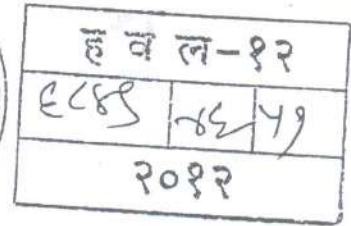 ह व ल-१२
६८४९ | ४६ | ५१
२०१२